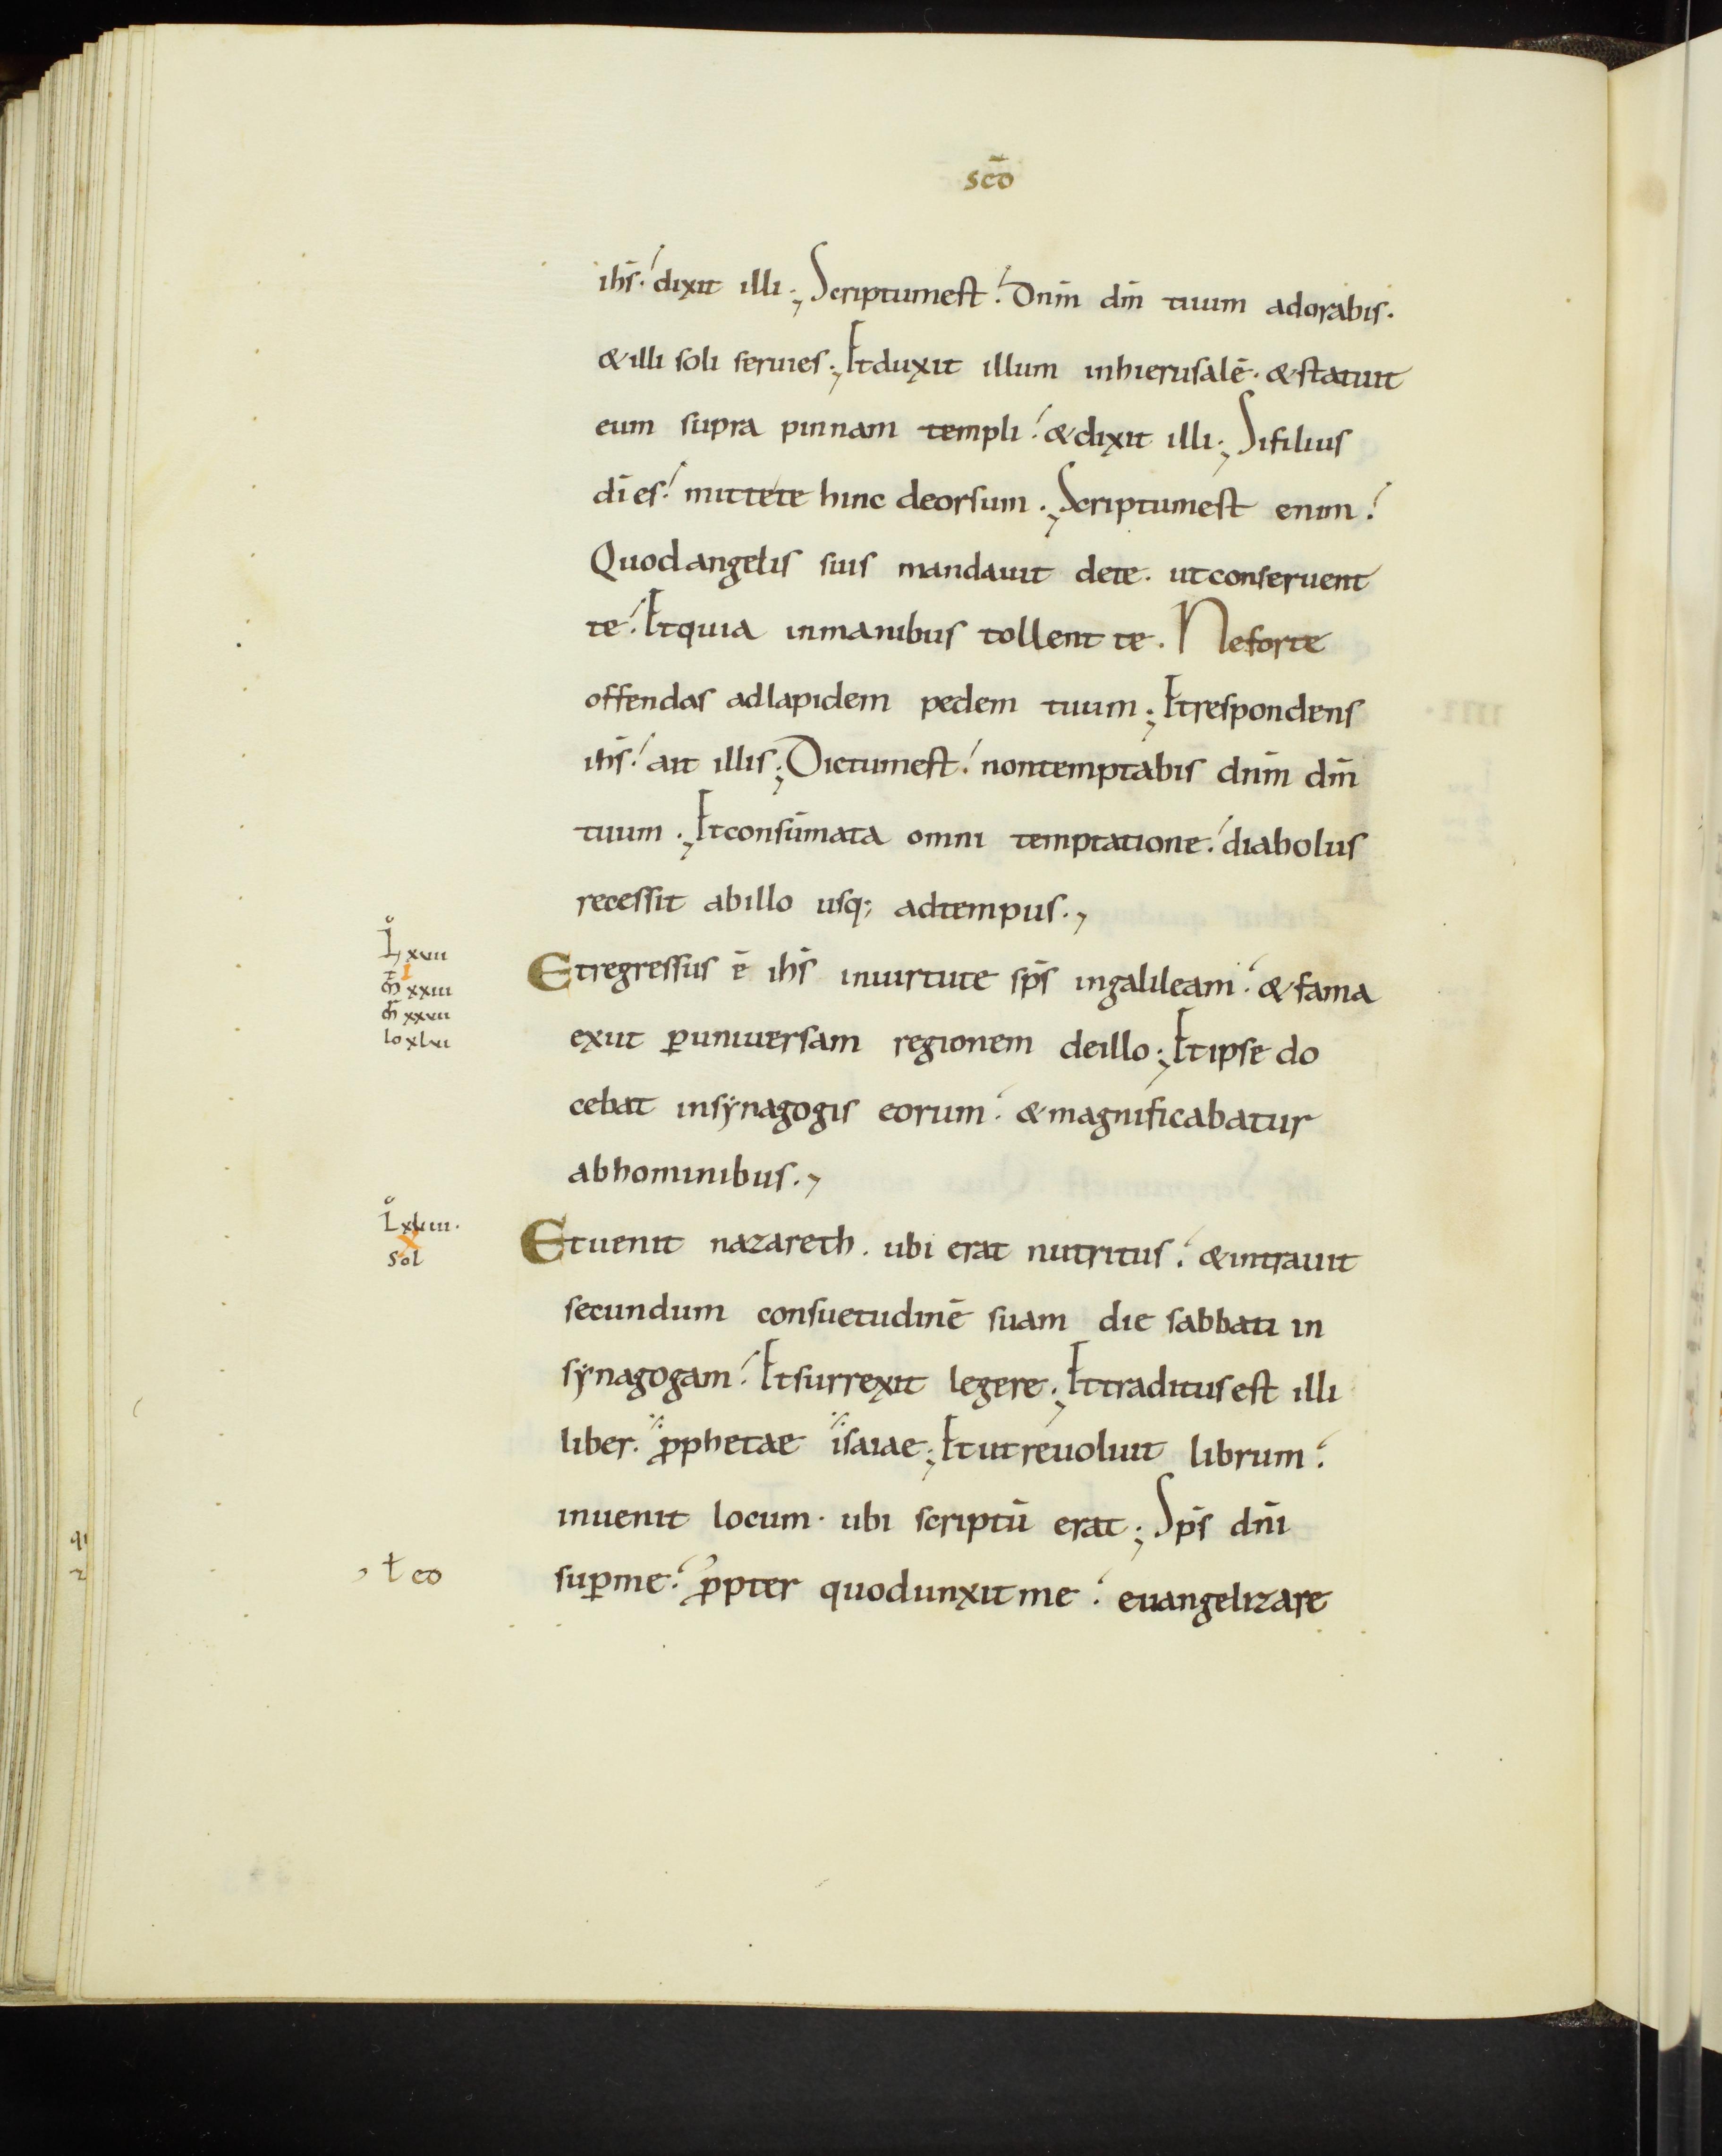 scō
ihs̄. dixit illi; Scriptumest. Dnm̄ dm̄ tuum adorabis.
& illi soli seruies; Etduxit illum inhierusalē. & statuit
eum supra pinnam templi. & dixit illi; Sifilius
dī es. mittete hinc deorsum; Scriptumest enim.
Quodangelis suis mandauit dete. utconseruent
te. Etquia inmanibus tollent te. Neforte
offendas adlapidem pedem tuum; Etrespondens
ihs̄. ait illis; Dictumest. nontemptabis dnm̄ dm̄
tuum; Etconsūmata omni temptatione. diabolus
recessit abillo usq; adtempus.,
L̊ xuii
I
Etregressus ē ihs̄ inuirtute sps̄ ingalileam. & fama
m̄ xxiii
m̄r xxuii
exiit ꝑuniuersam regionem deillo; Etipse do
Io xlui
cebat insẏnagogis eorum. & magnificabatur
abhominibus.,
L̊ xuiii.
X
Etuenit nazareth. ubi erat nutritus. & intrauit
Sol
secundum consuetudinē suam die sabbati in
sẏnagogam. Etsurrexit legere; Ettraditusest illi
liber. ꝓphetae isaiae; Etutreuoluit librum.
inuenit locum. ubi scriptū erat; Sps̄ dnī
suꝑme. ꝓpter quodunxitme. euangelizare
ł eo